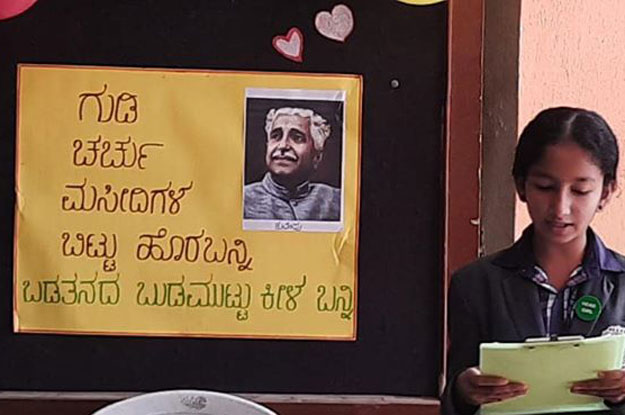 ಗುಡಿ
ಚರ್ಚು
ಮಸೀದಿಗಳ
ಬಿಟ್ಟು ಹೊರಬನ್ನಿ
ಬಡತನದ ಬುಡಮುಟ್ಟು ಕೀಳ ಬನ್ನಿ
ಕುವೆಂಪು